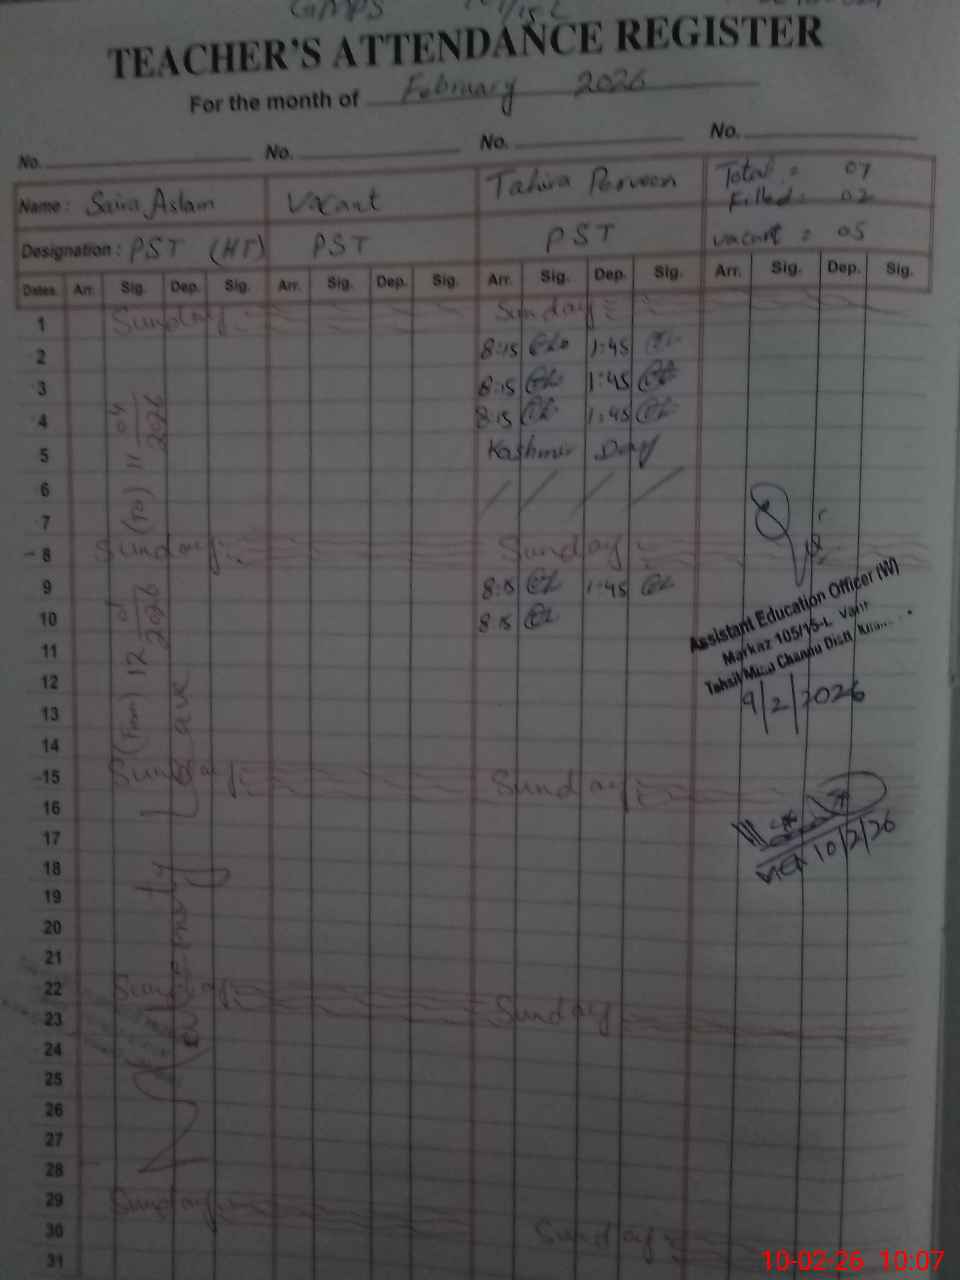 GMPS
TEACHER'S ATTENDANCE REGISTER
For the month of February 2026
No. No. No. No.
Name: Saira Aslam Vacant Tahira Perveen Total = 07
Filled = 02
Designation: PST (HT) PST PST Vacant = 05
Dates Arr. Sig. Dep. Sig. Arr. Sig. Dep. Sig. Arr. Sig. Dep. Sig. Arr. Sig. Dep. Sig.
1 Sunday Sunday
2 8:15 1:45
3 8:15 1:45
4 8:15 1:45
5 Kashmir Day
6
7
8 Sunday Sunday
9 8:15 1:45
10 8:15
11
12
13
14
15 Sunday Sunday
16
17
18
19
20
21
22 Sunday
23 Sunday
24
25
26
27
28
29 Sunday
30 Sunday
31
Maternity Leave (From) 12 01 2026 (To) 11 04 2026
Assistant Education Officer (W)
Markaz 105/15-L
Tehsil Mian Channu Distt.
9/2/2026
10/2/26
10-02-26 10:07